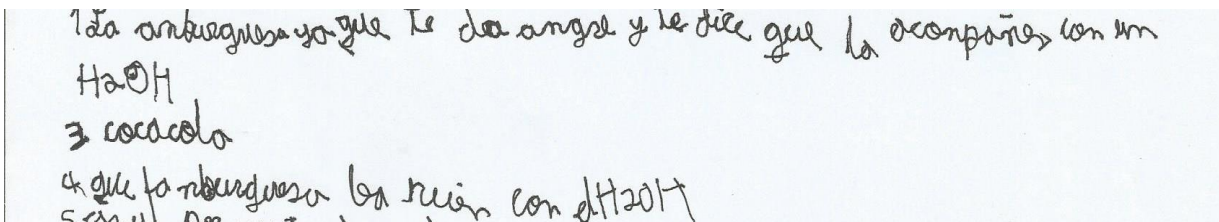 1 La anburguesa ya que te da angre y te dice que la aconpañes con un
H2OH
3 cocacola
4. que la nburguesa ba bien con el H2OH